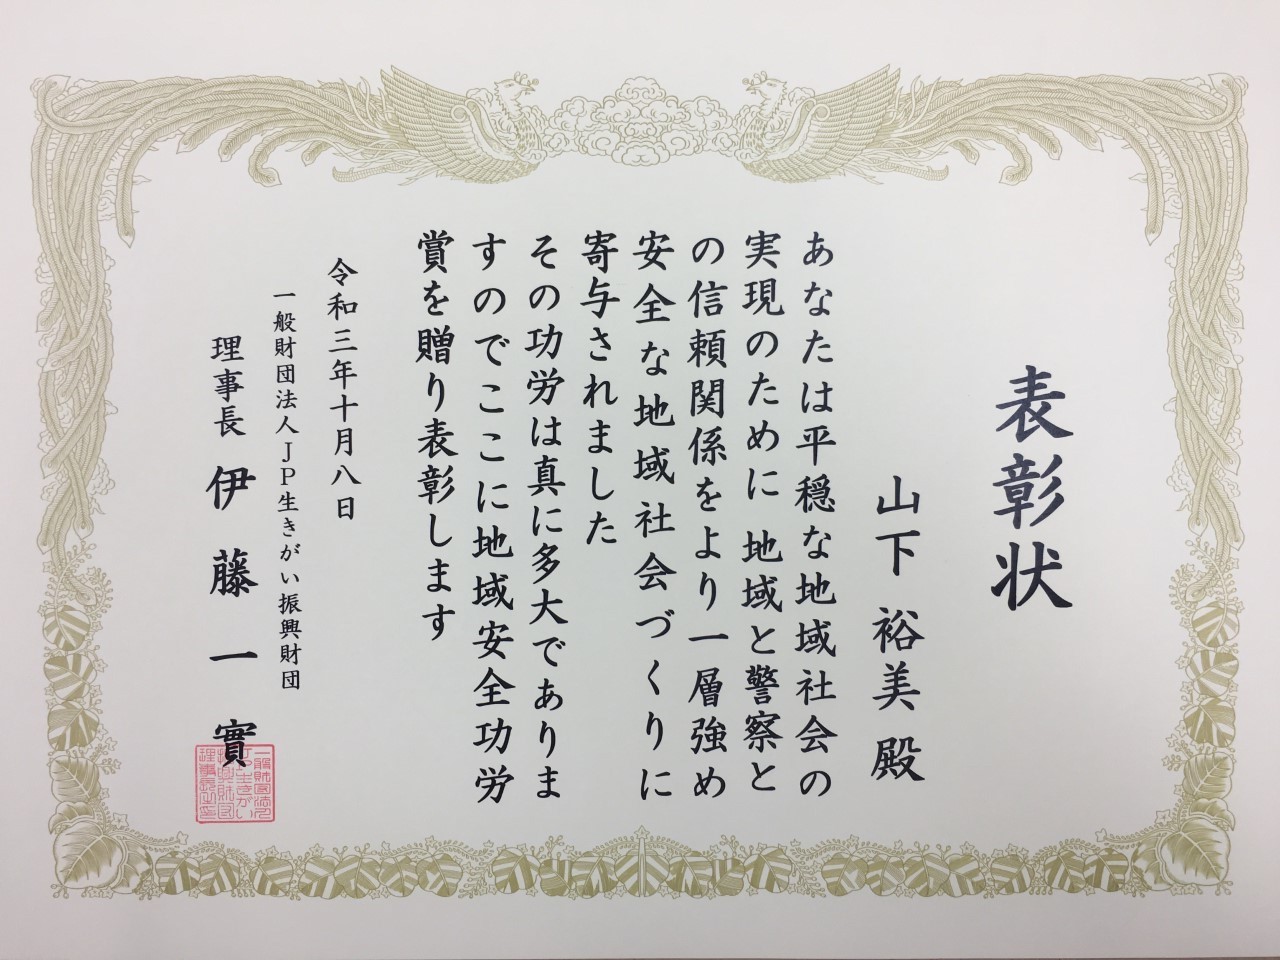 表彰状
山下裕美殿
あなたは平穏な地域社会の
実現のために地域と警察と
の信頼関係をより一層強め
安全な地域社会づくりに
寄与されました
その功労は真に多大でありま
すのでここに地域安全功労
賞を贈り表彰します
令和三年十月八日
一般財団法人JP生きがい振興財団
理事長 伊藤一實
一般財団法人
JP生きがい
振興財団
理事長之印